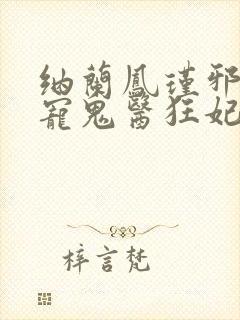 納蘭鳳瑾邪
寵鬼醫狂妃
梓言梵